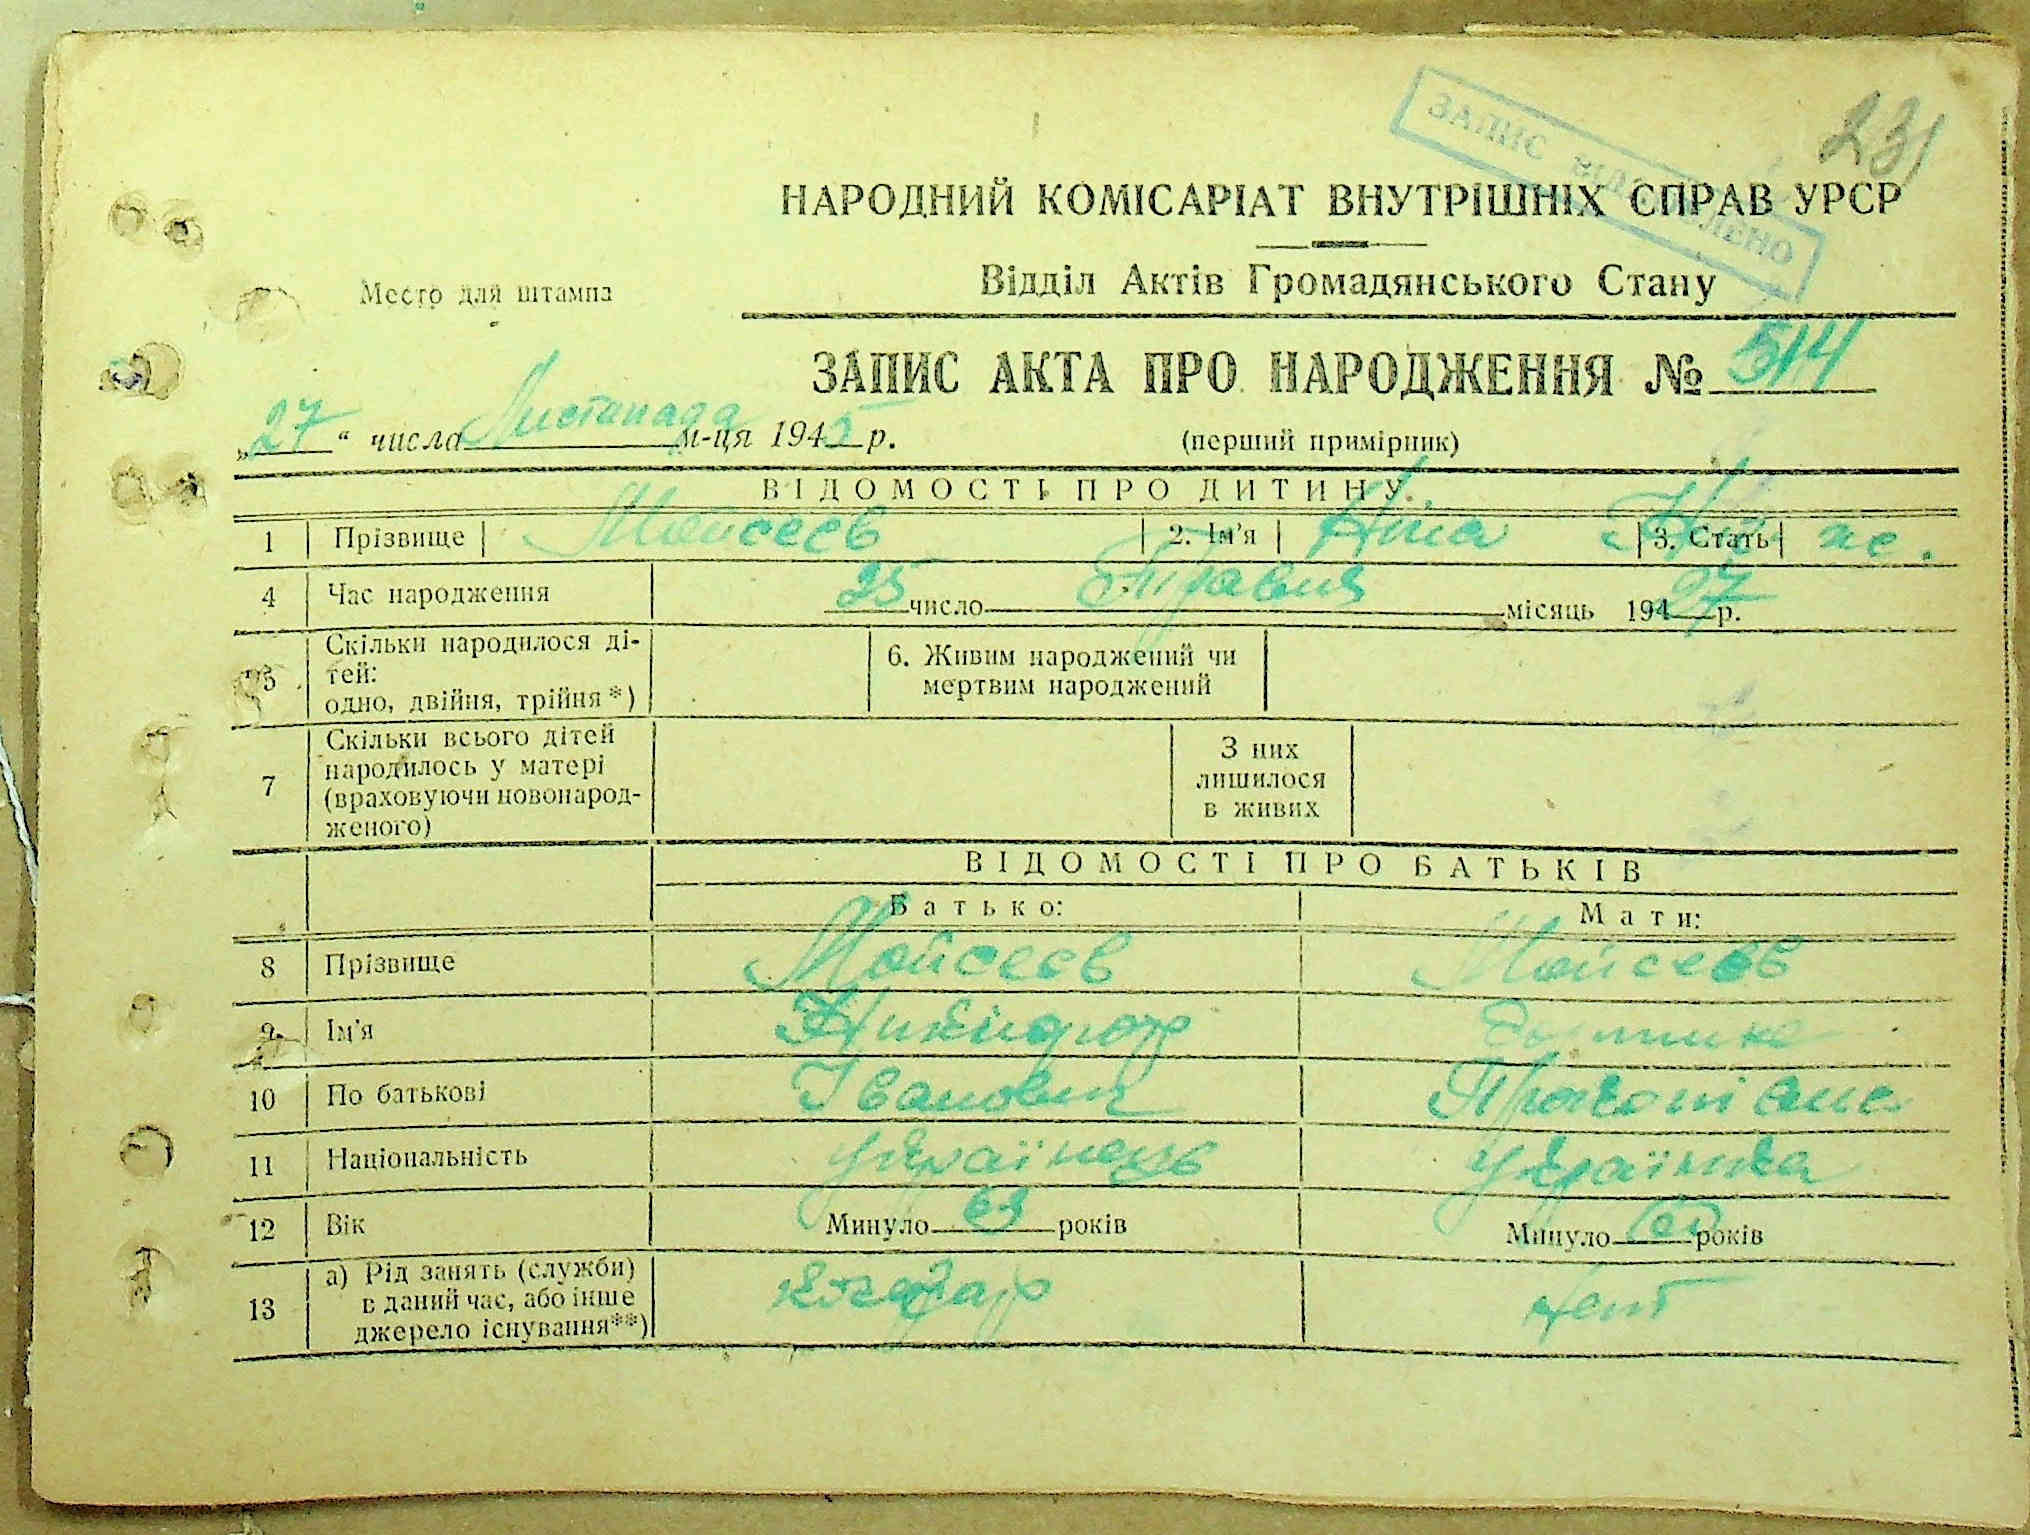 231
ЗАПИС ВІДНОВЛЕНО
НАРОДНИЙ КОМІСАРІАТ ВНУТРІШНІХ СПРАВ УРСР
Место для штампа
Відділ Актів Громадянського Стану
ЗАПИС АКТА ПРО НАРОДЖЕННЯ № 514
„27“ числа Листопада м-ця 1945 р. (перший примірник)
ВІДОМОСТІ ПРО ДИТИНУ
1 Прізвище Мойсеєв 2. Ім'я Ніна 3. Стать жє.
4 Час народження 25 число Травня місяць 1927 р.
5 Скільки народилося ді-
тей:
одно, двійня, трійня *)
6. Живим народжений чи
мертвим народжений
7 Скільки всього дітей
народилось у матері
(враховуючи новонарод-
женого)
З них
лишилося
в живих
ВІДОМОСТІ ПРО БАТЬКІВ
Батько: Мати:
8 Прізвище Мойсеєв Мойсеєв
9 Ім'я Никифор
10 По батькові Іванович
11 Національність українець Українка
12 Вік Минуло років Минуло років
13 а) Рід занять (служби)
в даний час, або інше
джерело існування**)